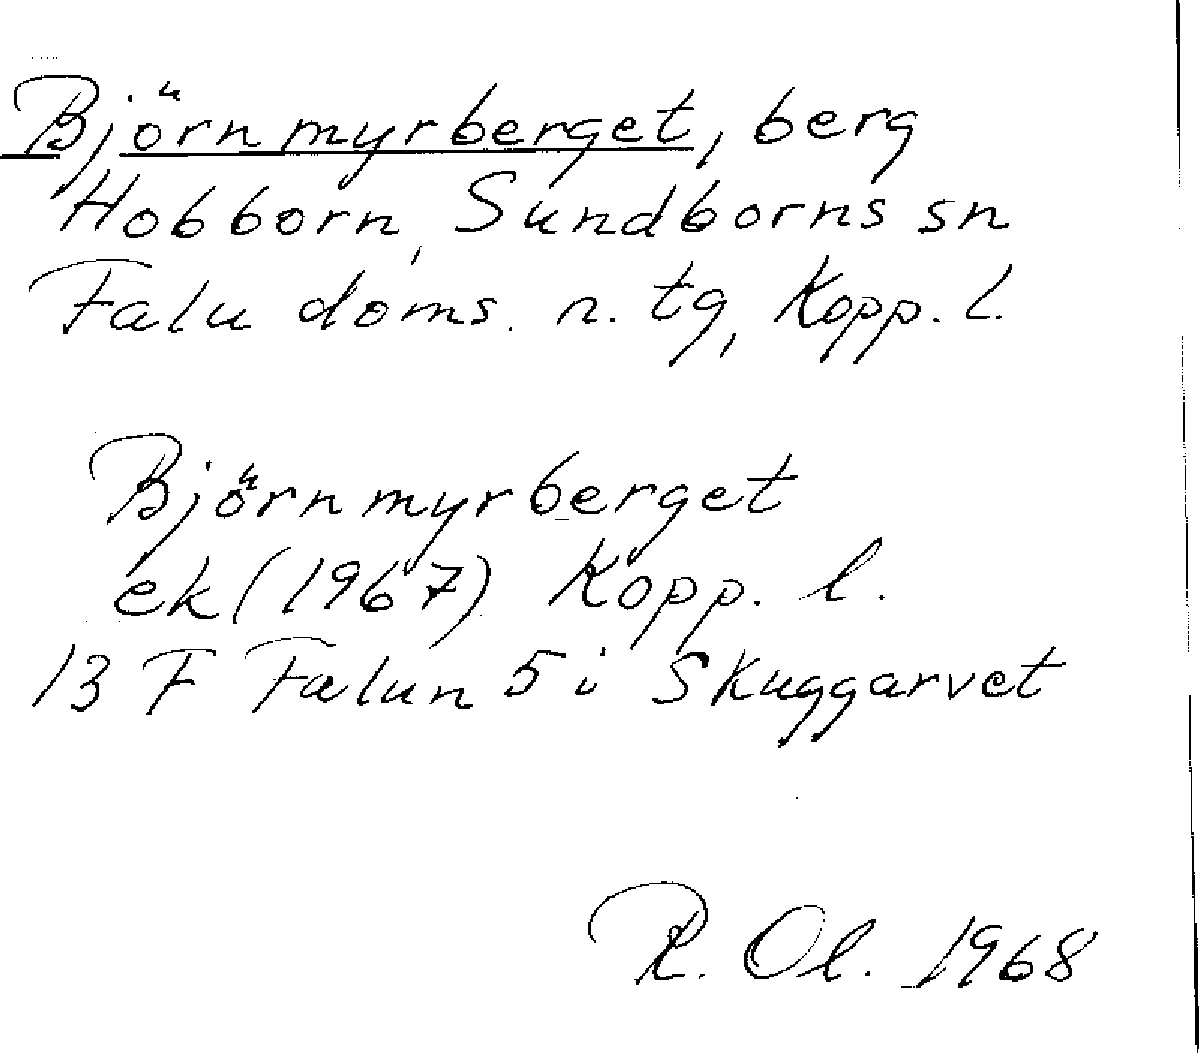 Björnmyrberget, berg
Hobborn, Sundborns sn
Falu doms. n. tg, Kopp. l.
Björnmyrberget
ek (1967) Kopp. l.
13 F Falun 5 i Skuggarvet
R. Ol. 1968